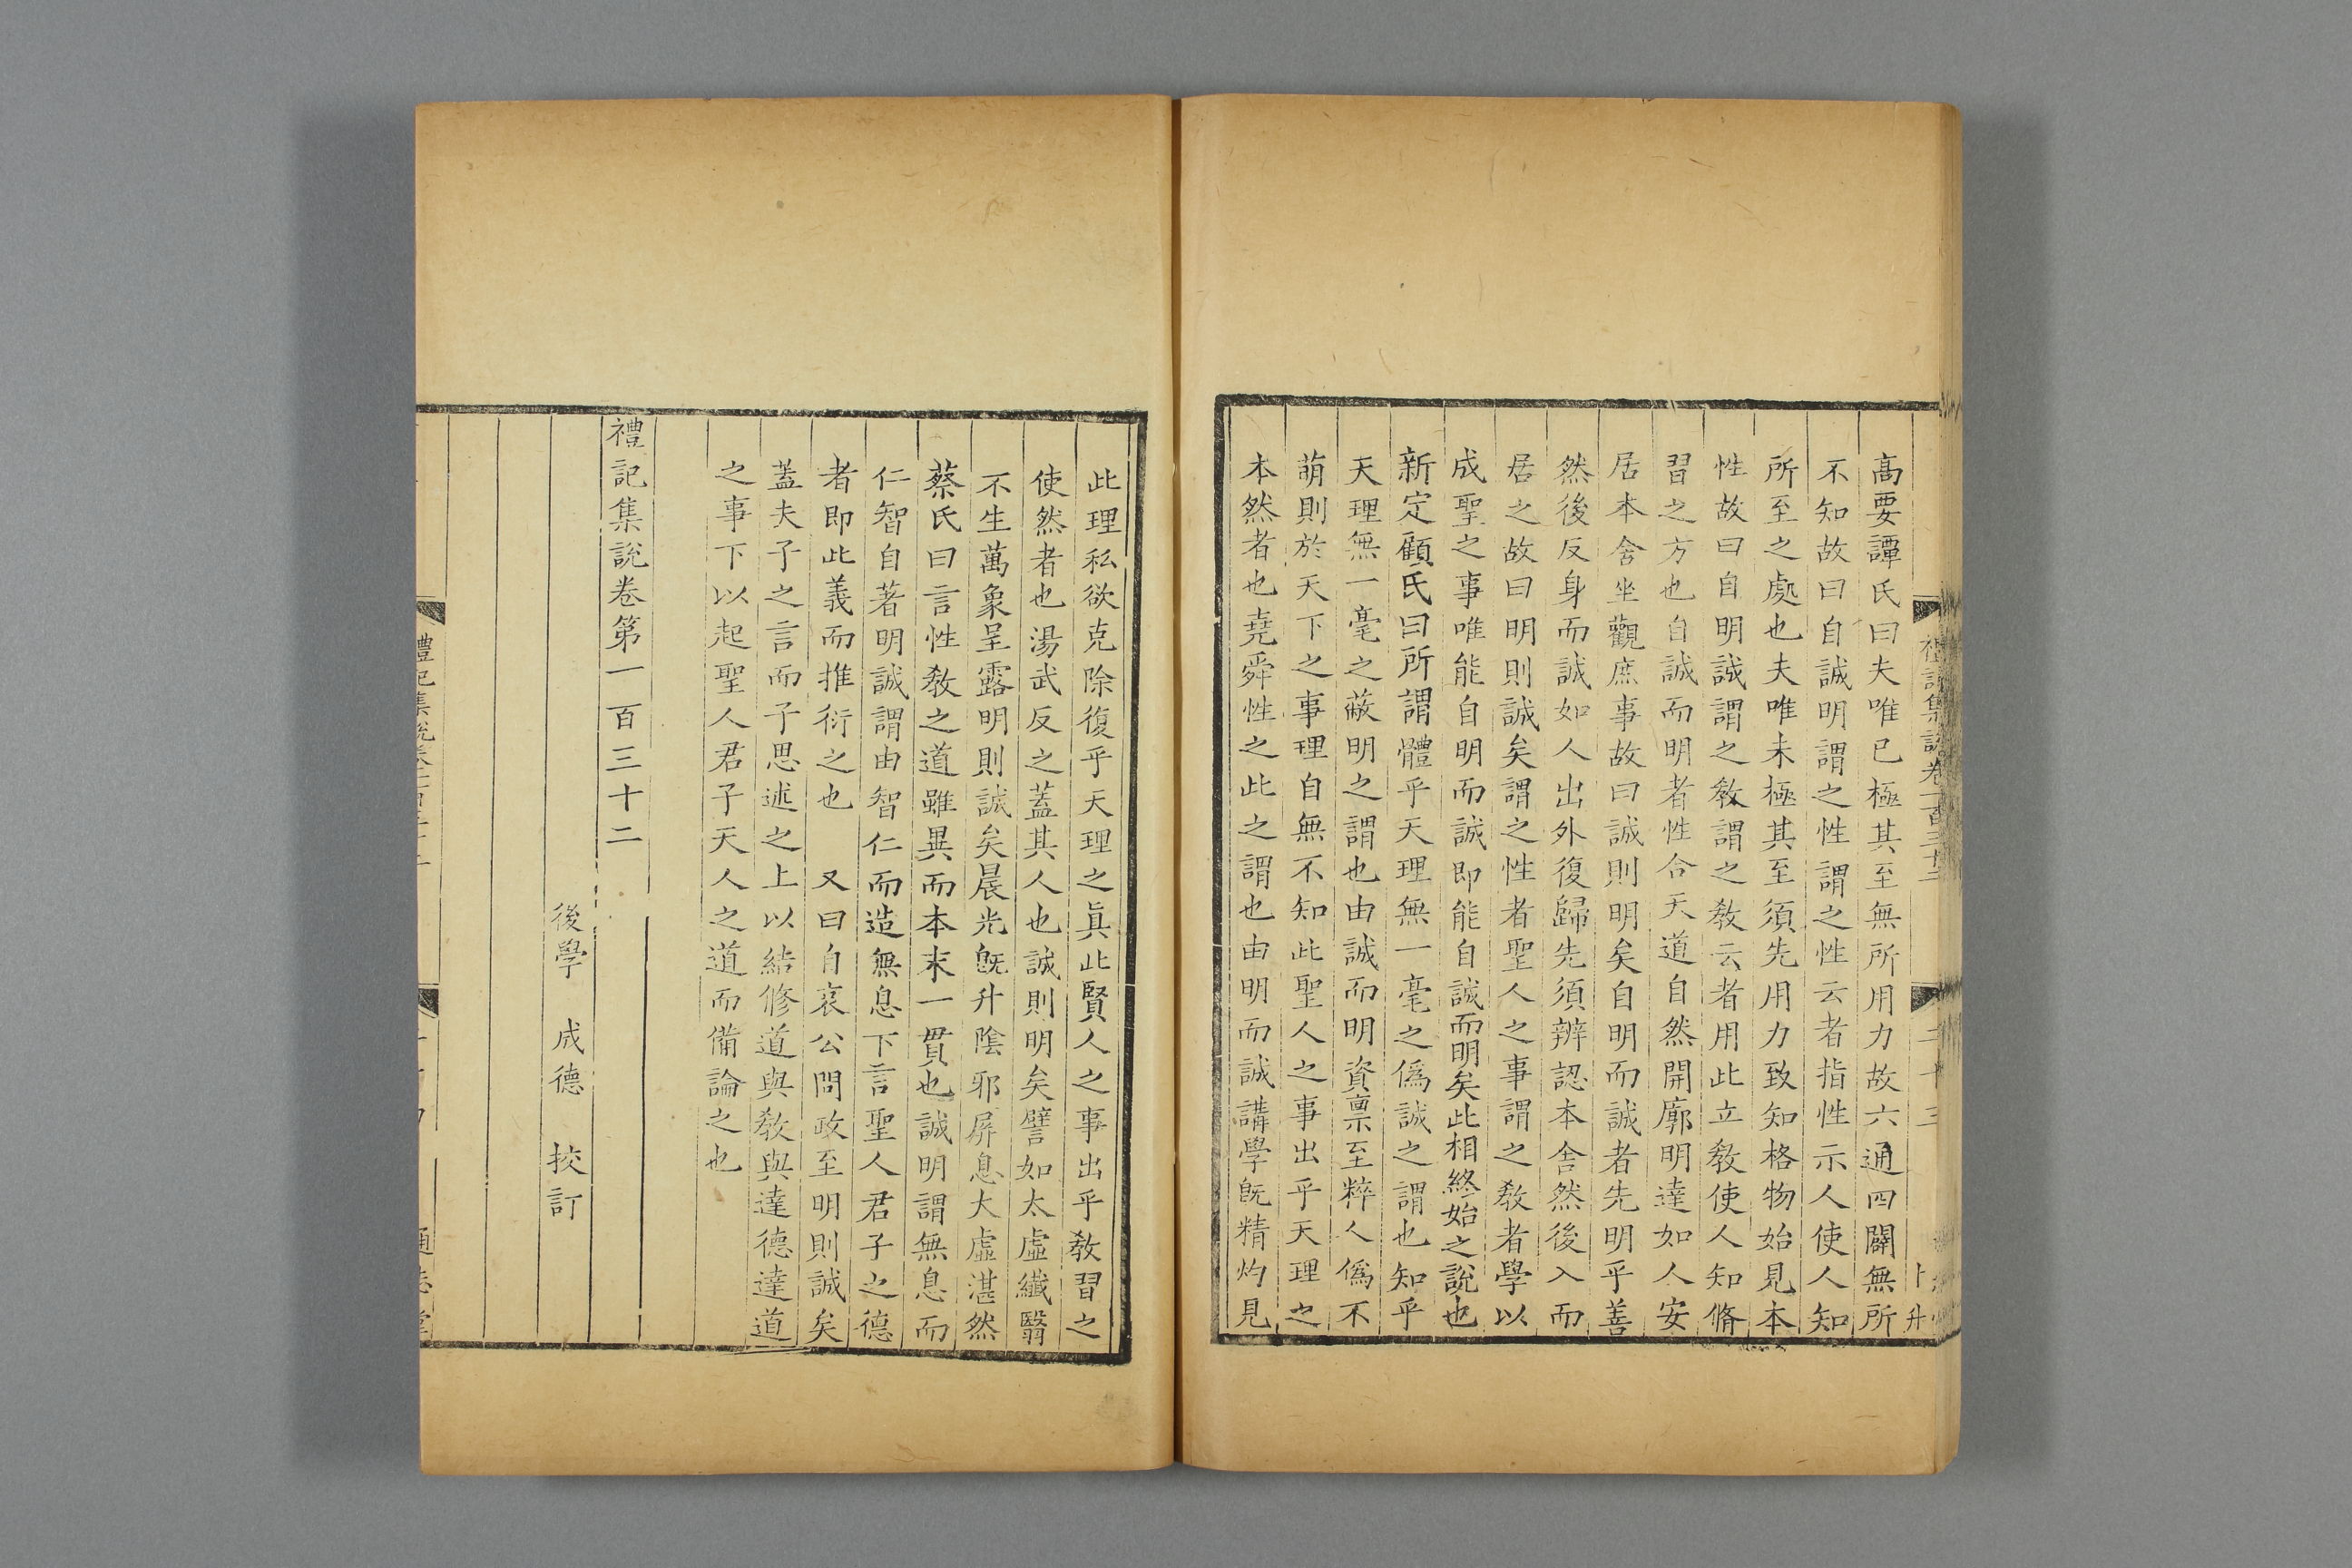 禮記集說卷一百三十二
二十三
高要譚氏曰夫唯已極其至無所用力故六通四闢無所
不知故曰自誠明謂之性謂之性云者指性示人使人知
所至之處也夫唯未極其至須先用力致知格物始見本
性故曰自明誠謂之敎謂之敎云者用此立敎使人知脩
習之方也自誠而明者性合天道自然開廓明達如人安
居本舍坐觀庶事故曰誠則明矣自明而誠者先明乎善
然後反身而誠如人出外復歸先須辨認本舍然後入而
居之故曰明則誠矣謂之性者聖人之事謂之敎者學以
成聖之事唯能自明而誠即能自誠而明矣此相終始之說也
新定顧氏曰所謂體乎天理無一毫之僞誠之謂也知乎
天理無一毫之蔽明之謂也由誠而明資稟至粹人僞不
萌則於天下之事理自無不知此聖人之事出乎天理之
本然者也堯舜性之此之謂也由明而誠講學旣精灼見
此理私欲克除復乎天理之眞此賢人之事出乎敎習之
使然者也湯武反之蓋其人也誠則明矣譬如太虛纖翳
不生萬象呈露明則誠矣晨光旣升陰邪屏息大虛湛然
蔡氏曰言性敎之道雖異而本末一貫也誠明謂無息而
仁智自著明誠謂由智仁而造無息下言聖人君子之德
者即此義而推衍之也　又曰自哀公問政至明則誠矣
蓋夫子之言而子思述之上以結修道與敎與達德達道
之事下以起聖人君子天人之道而備論之也
禮記集說卷第一百三十二
後學　成德　挍訂
通志堂